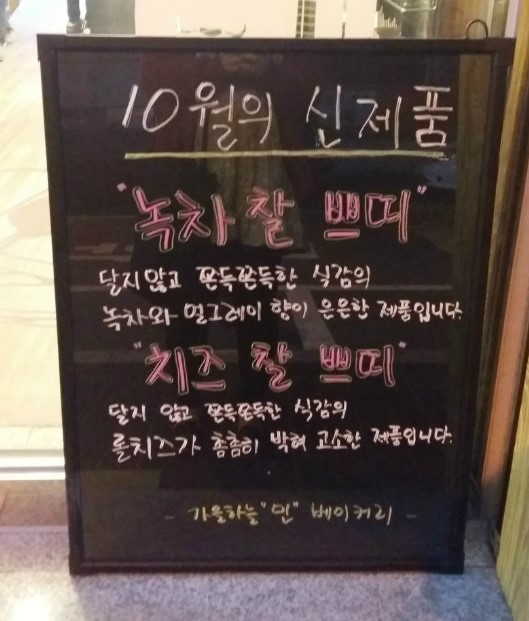 10월의 신제품
"녹차 찰 쁘띠"
달지않고 쫀득쫀득한 식감의
녹차와 얼그레이 향이 은은한 제품입니다.
"치즈 찰 쁘띠"
달지 않고 쫀득쫀득한 식감의
롤치즈가 촘촘히 박혀 고소한 제품입니다.
- 가을하늘"민" 베이커리 -